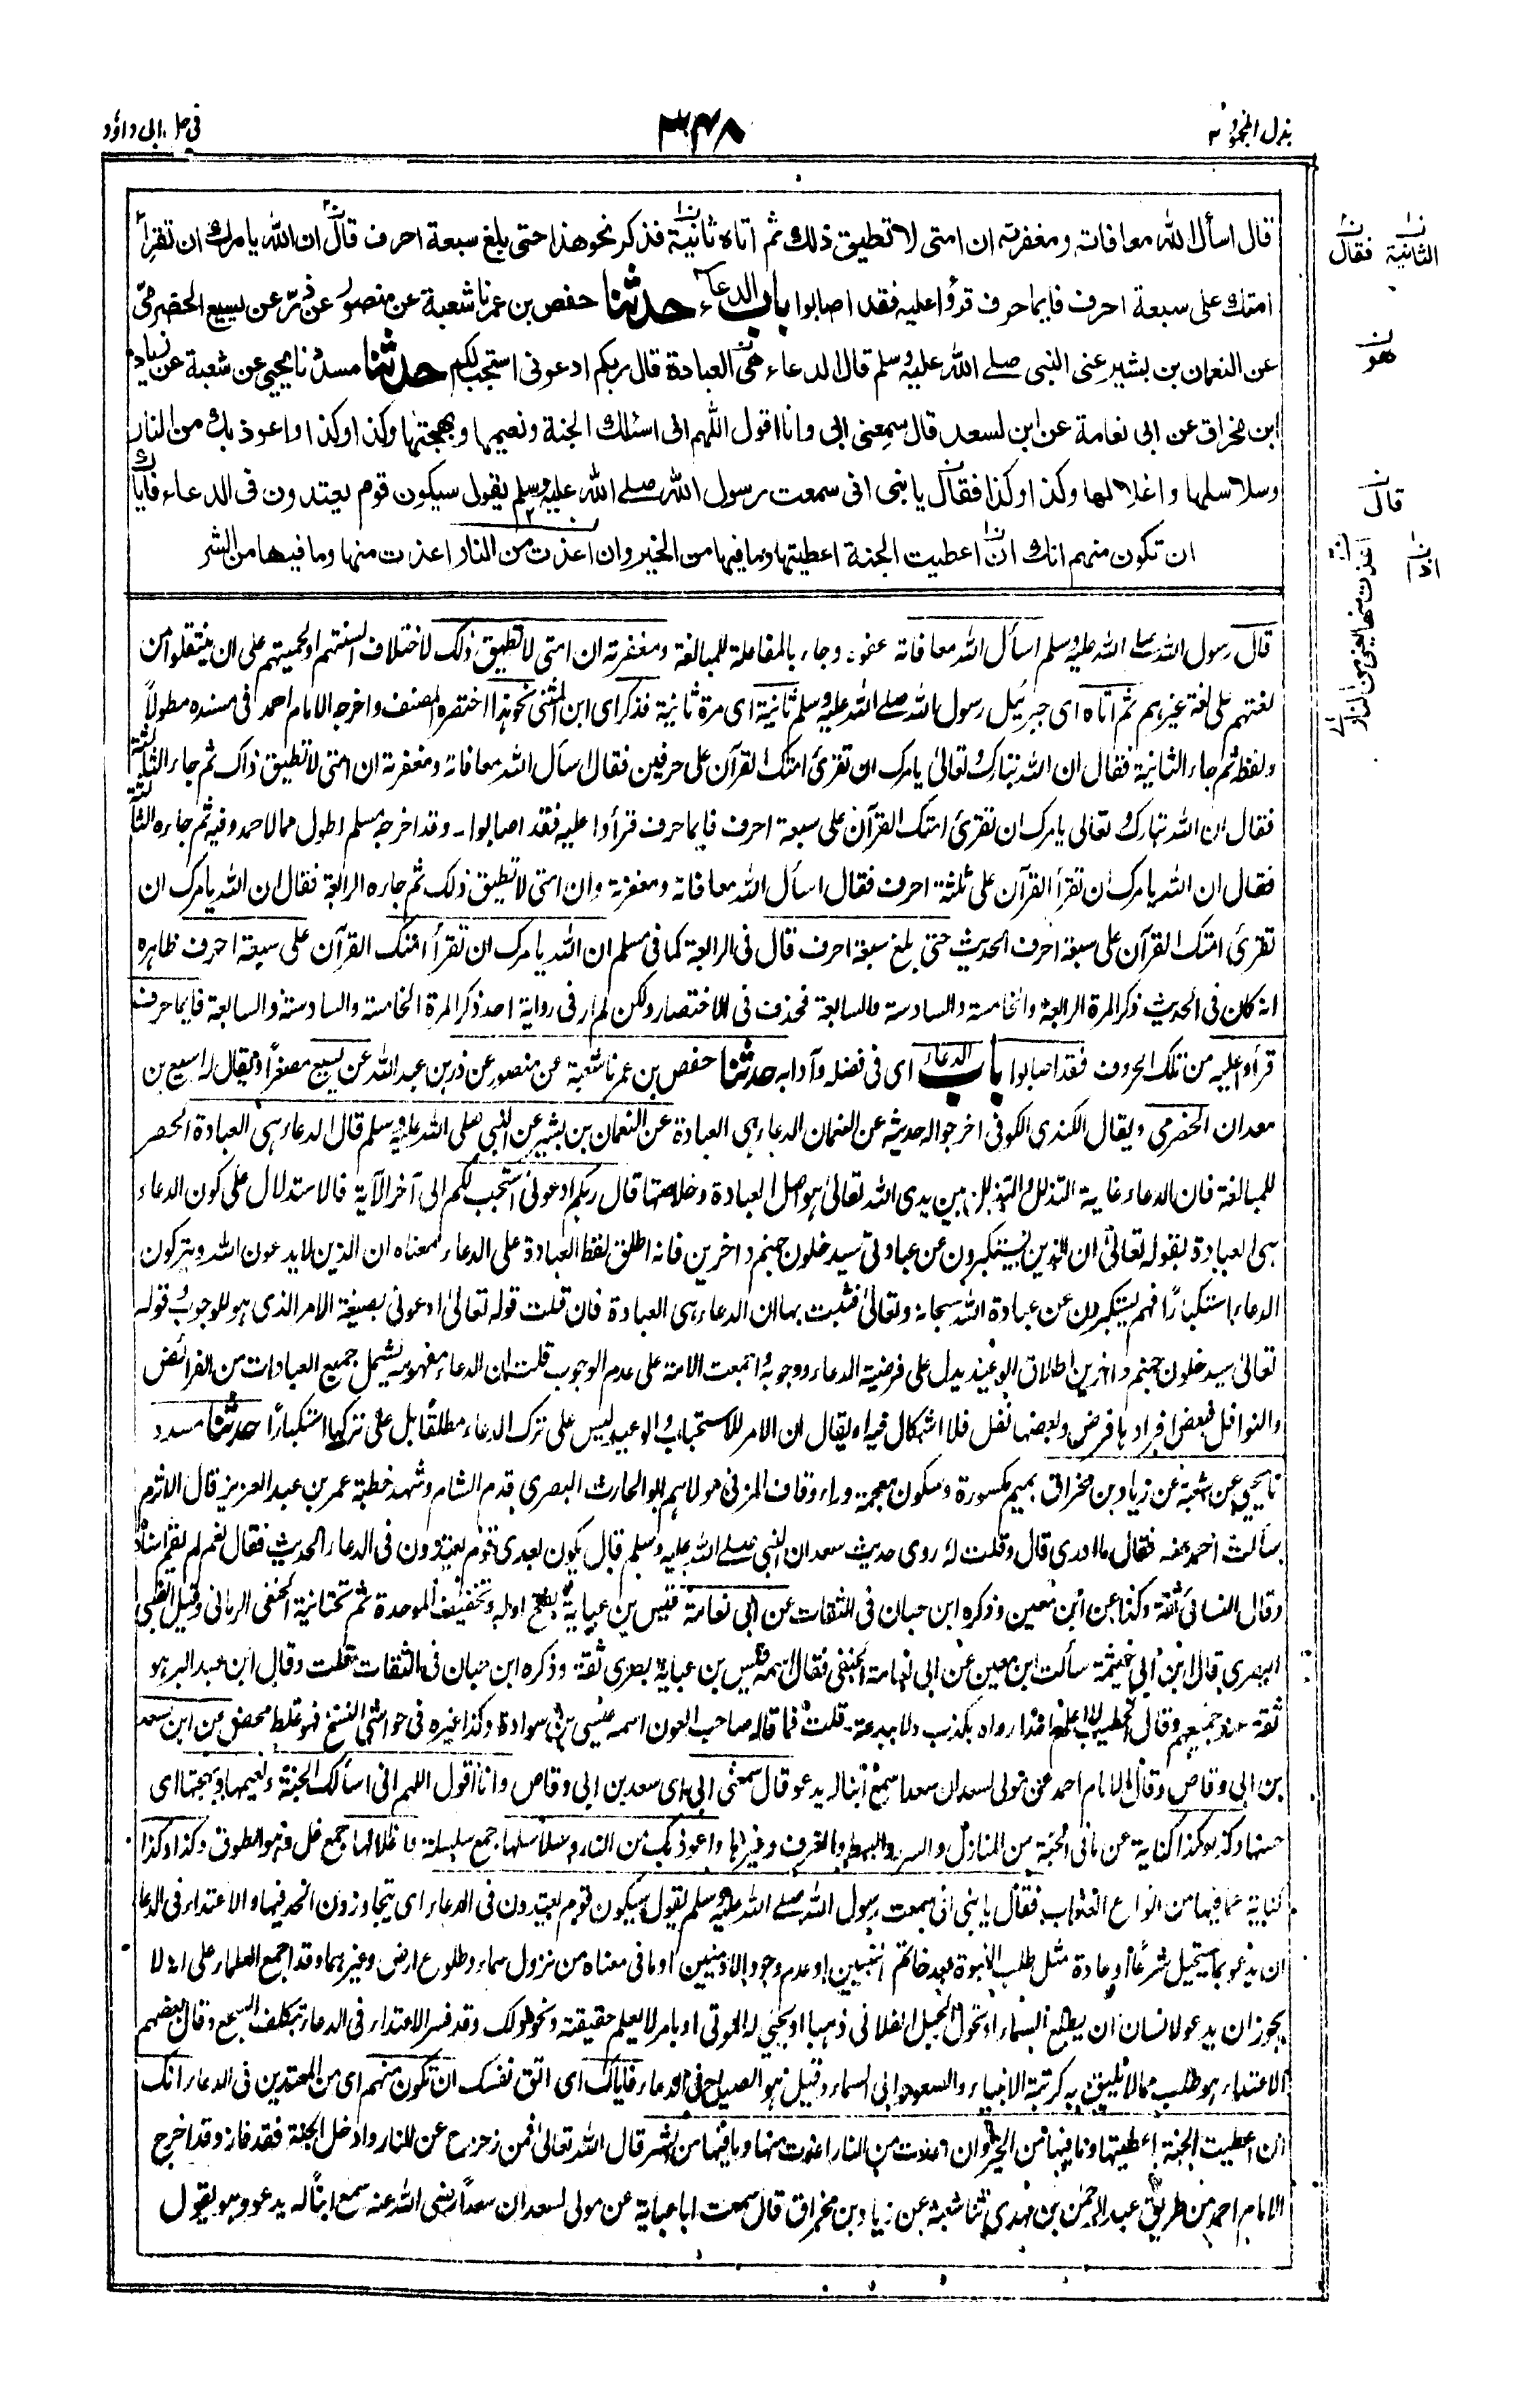 بذل المجهود ٢
٣٤٨
في حل ابى داؤد
قال اسأل الله معافاته ومغفرته ان امتى لا تطيق ذلك ثم اتاه ثانية فذكر نحو هذا حتى بلغ سبعة احرف قال ان الله يامرك ان تقرئ
امتك على سبعة احرف فايما حرف قرؤا عليه فقد اصابوا باب الدعاء حدثنا حفص بن عمر نا شعبة عن منصور عن ذر عن يسيع الحضرمى
عن النعمان بن بشير عن النبى صلى الله عليه وسلم قال الدعاء هى العبادة قال ربكم ادعونى استجب لكم حدثنا مسدد نا يحيى عن شعبة عن زياد
ابن مخراق عن ابى نعامة عن ابن لسعد قال سمعنى ابى وانا اقول اللهم انى اسئلك الجنة ونعيمها وبهجتها وكذا وكذا واعوذ بك من النار
وسلاسلها واغلالها وكذا وكذا فقال يا بنى انى سمعت رسول الله صلى الله عليه وسلم يقول سيكون قوم يعتدون فى الدعاء فاياك
ان تكون منهم انك ان اعطيت الجنة اعطيتها وما فيها من الخير وان اعذت من النار اعذت منها وما فيها من الشر
الثانية فقال
هو
قال
اذا
اعذت منها يعنى من النار
قال رسول الله صلى الله عليه وسلم اسأل الله معافاته عفوه وجاء بالمفاعلة للمبالغة ومغفرته ان امتى لا تطيق ذلك لاختلاف السنتهم او لحميتهم على ان ينتقلوا من
لغتهم على لغة غيرهم ثم اتاه اى جبرئيل رسول الله صلى الله عليه وسلم ثانية اى مرة ثانية فذكر اى ابن المثنى نحو هذا اختصره المصنف واخرجه الامام احمد فى مسنده مطولاً
ولفظه ثم جاء الثانية فقال ان الله تبارك وتعالى يامرك ان تقرئ امتك القرآن على حرفين فقال اسأل الله معافاته ومغفرته ان امتى لا تطيق ذاك ثم جاء الثالثة
فقال ان الله تبارك وتعالى يامرك ان تقرئ امتك القرآن على سبعة احرف فايما حرف قرأوا عليه فقد اصابوا۔ وقد اخرجه مسلم اطول مما لاحمد وفيه ثم جاءه الثالثة
فقال ان الله يامرك ان تقرأ القرآن على ثلثة احرف فقال اسأل الله معافاته ومغفرته وان امتى لا تطيق ذلك ثم جاءه الرابعة فقال ان الله يامرك ان
تقرئ امتك القرآن على سبعة احرف الحديث حتى بلغ سبعة احرف قال فى الرابعة كما فى مسلم ان الله يامرك ان تقرأ امتك القرآن على سبعة احرف ظاهره
انه كان فى الحديث ذكر المرة الرابعة والخامسة والسادسة والسابعة فحذف فى الاختصار ولكن لم ار فى رواية احد ذكر المرة الخامسة والسادسة والسابعة فايما حرف
قرأوا عليه من تلك الحروف فقد اصابوا باب الدعاء اى فى فضله وآدابه حدثنا حفص بن عمر نا شعبة عن منصور عن ذر بن عبد الله عن يسيع مصغراً ويقال له اسيع بن
معدان الحضرمى ويقال الكندى الكوفى اخرجوا له حديثه عن النعمان الدعاء هى العبادة عن النعمان بن بشير عن النبى صلى الله عليه وسلم قال الدعاء هى العبادة الحصر
للمبالغة فان الدعاء غاية التذلل والتبذلل بين يدى الله تعالى هو اصل العبادة وخلاصتها قال ربكم ادعونى استجب لكم الى آخر الآية فالاستدلال على كون الدعاء
هى العبادة بقوله تعالى ان الذين يستكبرون عن عبادتى سيدخلون جهنم داخرين فانه اطلق لفظ العبادة على الدعاء لمعناه ان الذين لا يدعون الله ويتركون
الدعاء استكباراً فهم يستكبرون عن عبادة الله سبحانه وتعالى فثبت بها ان الدعاء هى العبادة فان قلت قوله تعالى ادعونى بصيغة الامر الذى هو للوجوب وقوله
تعالى سيدخلون جهنم داخرين اطلاق الوعيد يدل على فرضية الدعاء ووجوبه واجتمعت الامة على عدم الوجوب قلت ان الدعاء مفهومه يشمل جميع العبادات من الفرائض
والنوافل فبعض افرادها فرض وبعضها نفل فلا اشكال فيه او يقال ان الامر للاستحباب والوعيد ليس على ترك الدعاء مطلقاً بل على تركها استكباراً حدثنا مسدد
نا يحيى عن شعبة عن زياد بن مخراق بميم مكسورة وسكون معجمة وراء وقاف المزنى مولاهم ابو الحارث البصرى قدم الشام وشهد خطبة عمر بن عبد العزيز قال الاثرم
سألت احمد عنه فقال ما ادرى قال وقلت له روى حديث سعد ان النبى صلى الله عليه وسلم قال يكون بعدى قوم يعتدون فى الدعاء الحديث فقال نعم لم يقم اسناده
وقال النسائى ثقة وكذا عن ابن معين وذكره ابن حبان فى الثقات عن ابى نعامة قيس بن عباية بفتح اوله وتخفيف الموحدة ثم تحتانية الحنفى الرمانى وقيل الضبى
البصرى قال ابن ابى خيثمة سألت ابن معين عن ابى نعامة الحنفى فقال اسمه قيس بن عباية بصرى ثقة وذكره ابن حبان فى الثقات قلت وقال ابن عبد البر هو
ثقة عند جميعهم وقال الخطيب لا اعلم احدا رماه بكذب ولا ببدعة۔ قلت فما قاله صاحب العون اسمه عيسى بن سوادة وكذا غيره فى حواشى النسخ فهو غلط محض عن ابن لسعد
بن ابى وقاص وقال الامام احمد عن مولى لسعد ان سعدا سمع ابنا له يدعو قال سمعنى ابى اى سعد بن ابى وقاص وانا اقول اللهم انى اسألك الجنة ونعيمها وبهجتها اى
حسنها وكذا وكذا كناية عن ما فى الجنة من المنازل والسرر والبسط والغرف وغيرها واعوذ بك من النار وسلاسلها جمع سلسلة واغلالها جمع غل وهو الطوق وكذا وكذا
كناية عما فيها من انواع العذاب فقال يا بنى انى سمعت رسول الله صلى الله عليه وسلم يقول سيكون قوم يعتدون فى الدعاء اى يتجاوزون الحد فيها والاعتداء فى الدعاء
ان يدعو بما يستحيل شرعاً او عادة مثل طلب النبوة بعد خاتم النبيين او عدم وجود الآدميين او ما فى معناه من نزول سماء وطلوع ارض وغيرهما وقد اجمع العلماء على انه لا
يجوز ان يدعو الانسان ان يطلع السماء او تحول الجبل الفلانى ذهبا او يحيى له الموتى او بامر لا يعلم حقيقته ونحو ذلك وقد فسر الاعتداء فى الدعاء بتكلف السجع وقال بعضهم
الاعتداء هو طلب مما لا يليق به كرتبة الانبياء والصعود الى السماء وقيل هو الصياح فى الدعاء فاياك اى اتق نفسك ان تكون منهم اى من المعتدين فى الدعاء انك
ان اعطيت الجنة اعطيتها وما فيها من الخير وان اعذت من النار اعذت منها وما فيها من الشر قال الله تعالى فمن زحزح عن النار وادخل الجنة فقد فاز وقد اخرج
الامام احمد من طريق عبد الرحمن بن مهدى ثنا شعبة عن زياد بن مخراق قال سمعت ابا عباية عن مولى لسعد ان سعداً رضى الله عنه سمع ابناً له يدعو وهو يقول